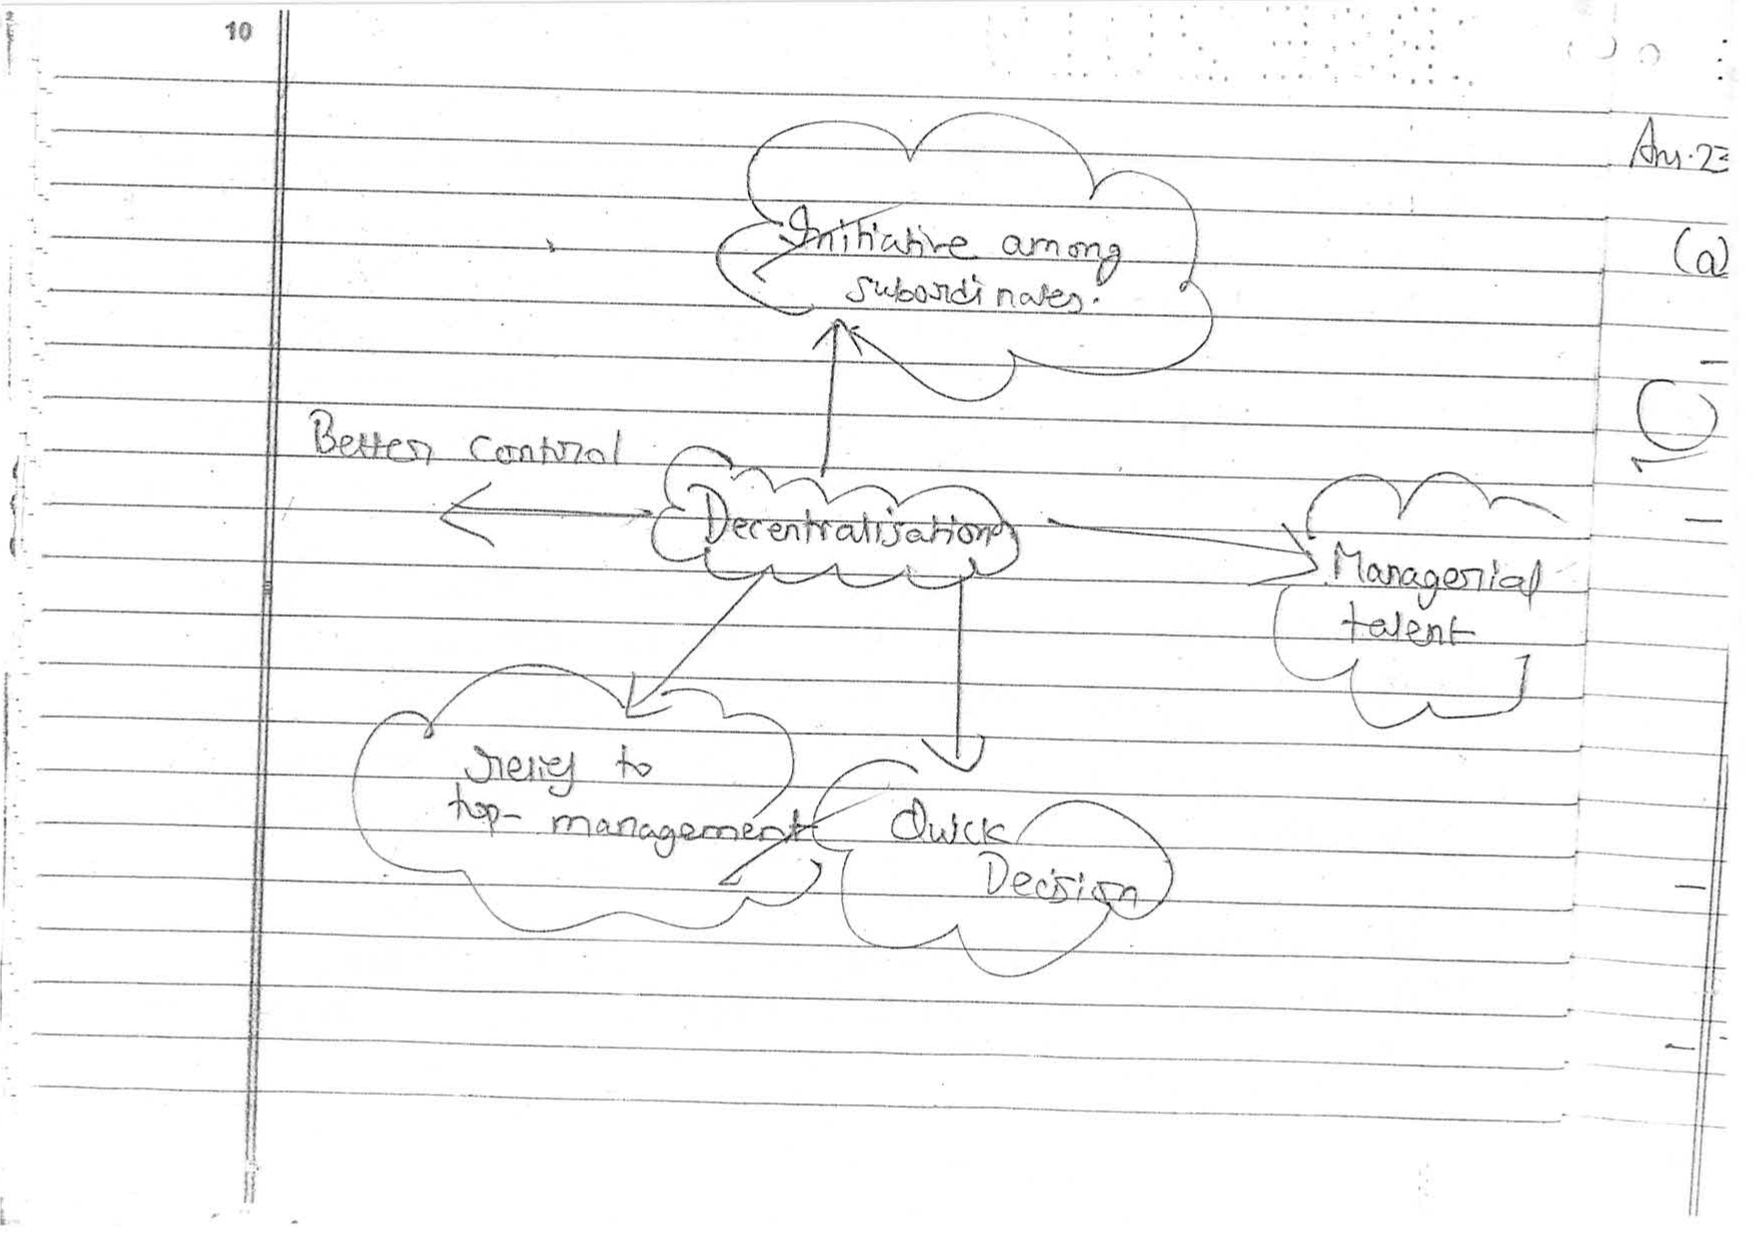 10
Ans.23
(a)
Initiative among
subordinates.
Better control
Decentralisation
Managerial
talent
relief to
top- management
Quick
Decision